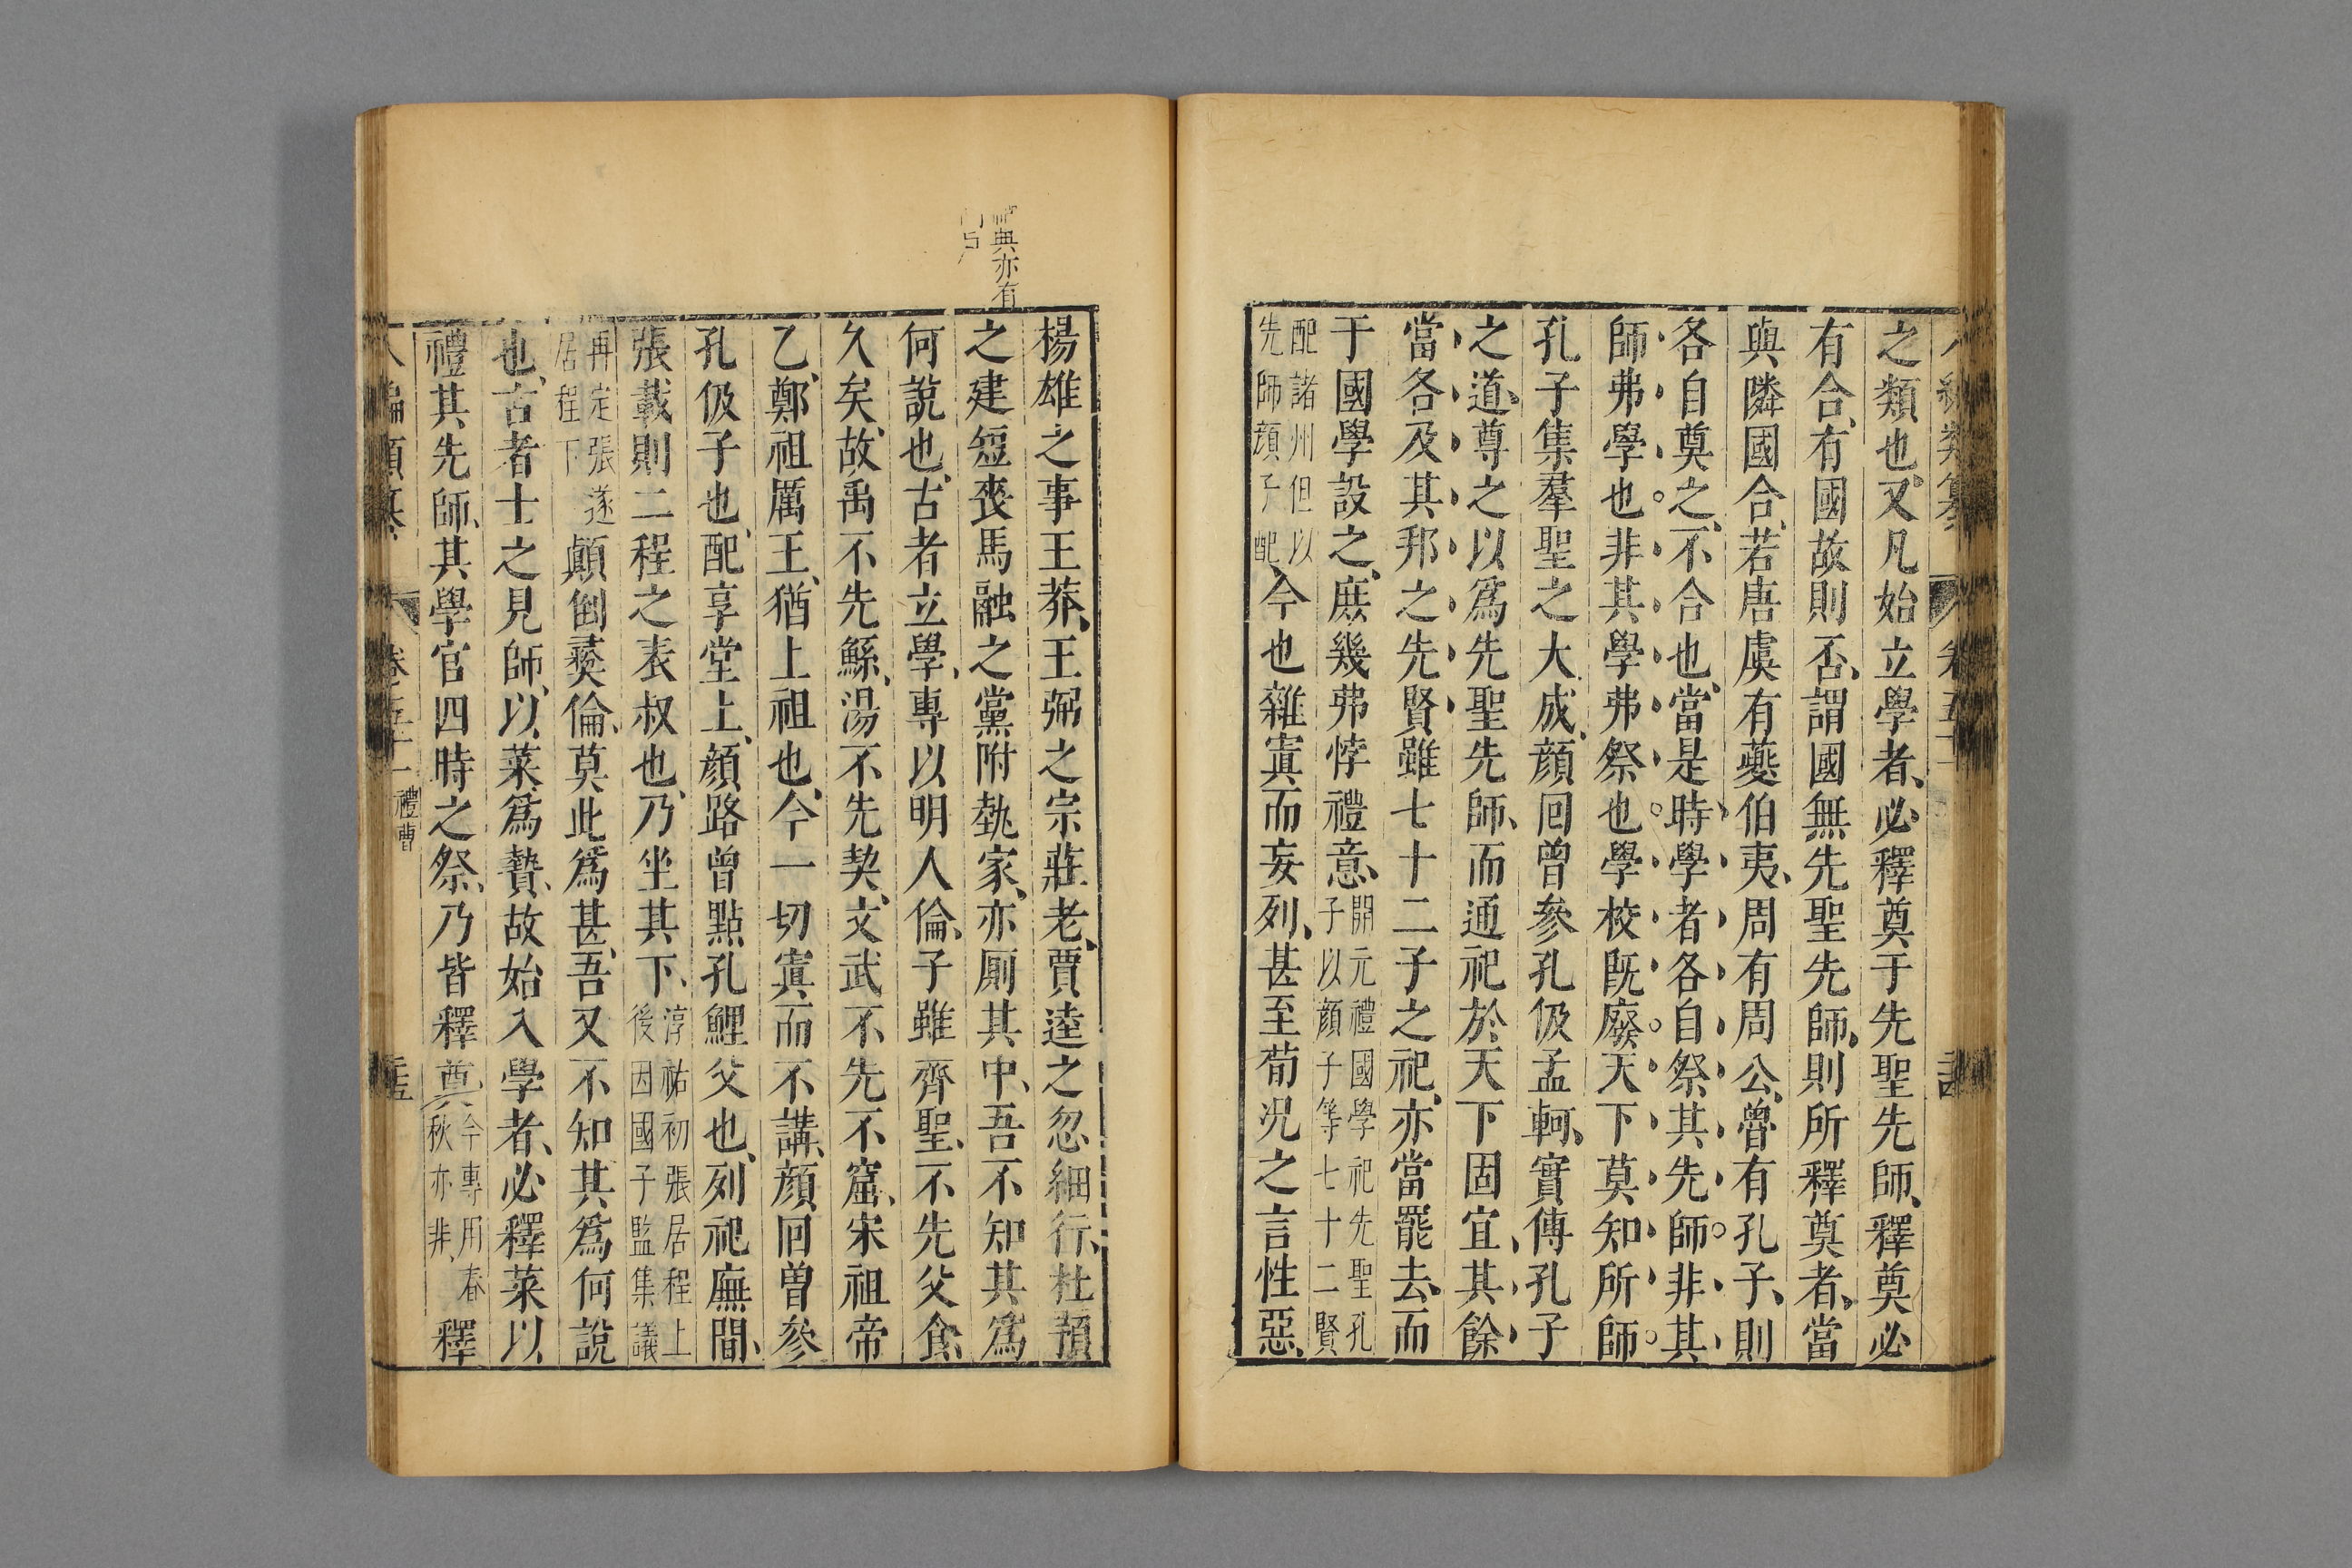 之類也又凡始立學者、必釋奠于先聖先師、釋奠必
有合、有國故則否、謂國無先聖先師、則所釋奠者、當
與隣國合、若唐虞有夔伯夷、周有周公、魯有孔子、則
各自奠之、不合也、當是時學者各自祭其先師。非其
師弗學也。非其學弗祭也。學校旣廢。天下莫知所師。
孔子集羣聖之大成、顔回曾參孔伋孟軻、實傳孔子
之道、尊之以爲先聖先師、而通祀於天下固宜、其餘
當各及其邦之先賢、雖七十二子之祀、亦當罷去、而
于國學設之、庶幾弗悖禮意、開元禮國學祀先聖孔子以顔子等七十二賢
配諸州但以先師顔子配今也雜寘而妄列、甚至荀況之言性惡、
楊雄之事王莽、王弼之宗莊老、賈逵之忽細行、杜預
之建短喪馬融之黨附埶家、亦厠其中、吾不知其爲
何說也、古者立學、專以明人倫、子雖齊聖、不先父食、
久矣、故禹不先鯀、湯不先契、文武不先不窋、宋祖帝
乙、鄭祖厲王、猶上祖也、今一切寘而不講、顔回曾參
孔伋子也、配享堂上、顔路曾點孔鯉父也、列祀廡間、
張載則二程之表叔也、乃坐其下、淳祐初張居程上後因國子監集議
再定張遂居程下顚倒彝倫、莫此爲甚、吾又不知其爲何說
也、古者士之見師、以菜爲贄、故始入學者、必釋菜以
禮其先師、其學官四時之祭、乃皆釋奠今專用春秋亦非、釋
卷五十一 禮曹
典亦有